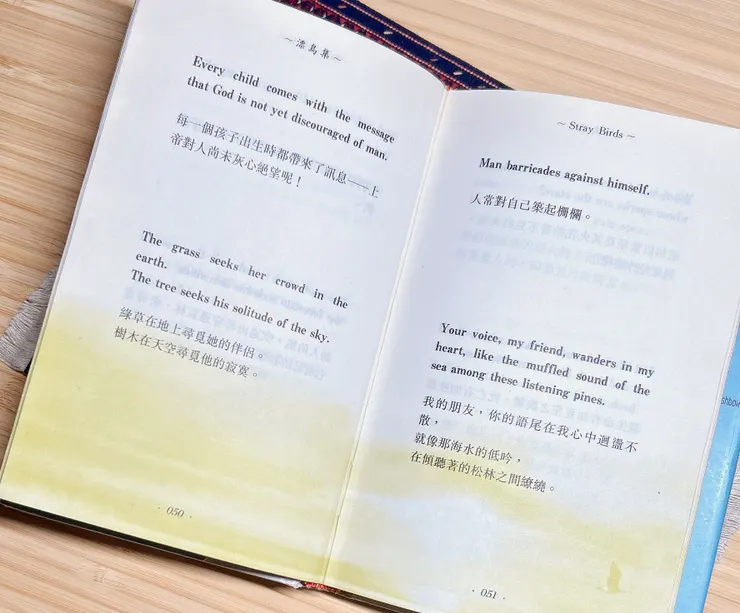 ～漂鳥集～
Every child comes with the message
that God is not yet discouraged of man.
每一個孩子出生時都帶來了訊息——上
帝對人尚未灰心絕望呢！
The grass seeks her crowd in the
earth.
The tree seeks his solitude of the sky.
綠草在地上尋覓她的伴侶。
樹木在天空尋覓他的寂寞。
· 050 ·
～ Stray Birds ～
Man barricades against himself.
人常對自己築起柵欄。
Your voice, my friend, wanders in my
heart, like the muffled sound of the
sea among these listening pines.
我的朋友，你的語尾在我心中迴盪不
散，
就像那海水的低吟，
在傾聽著的松林之間繚繞。
· 051 ·